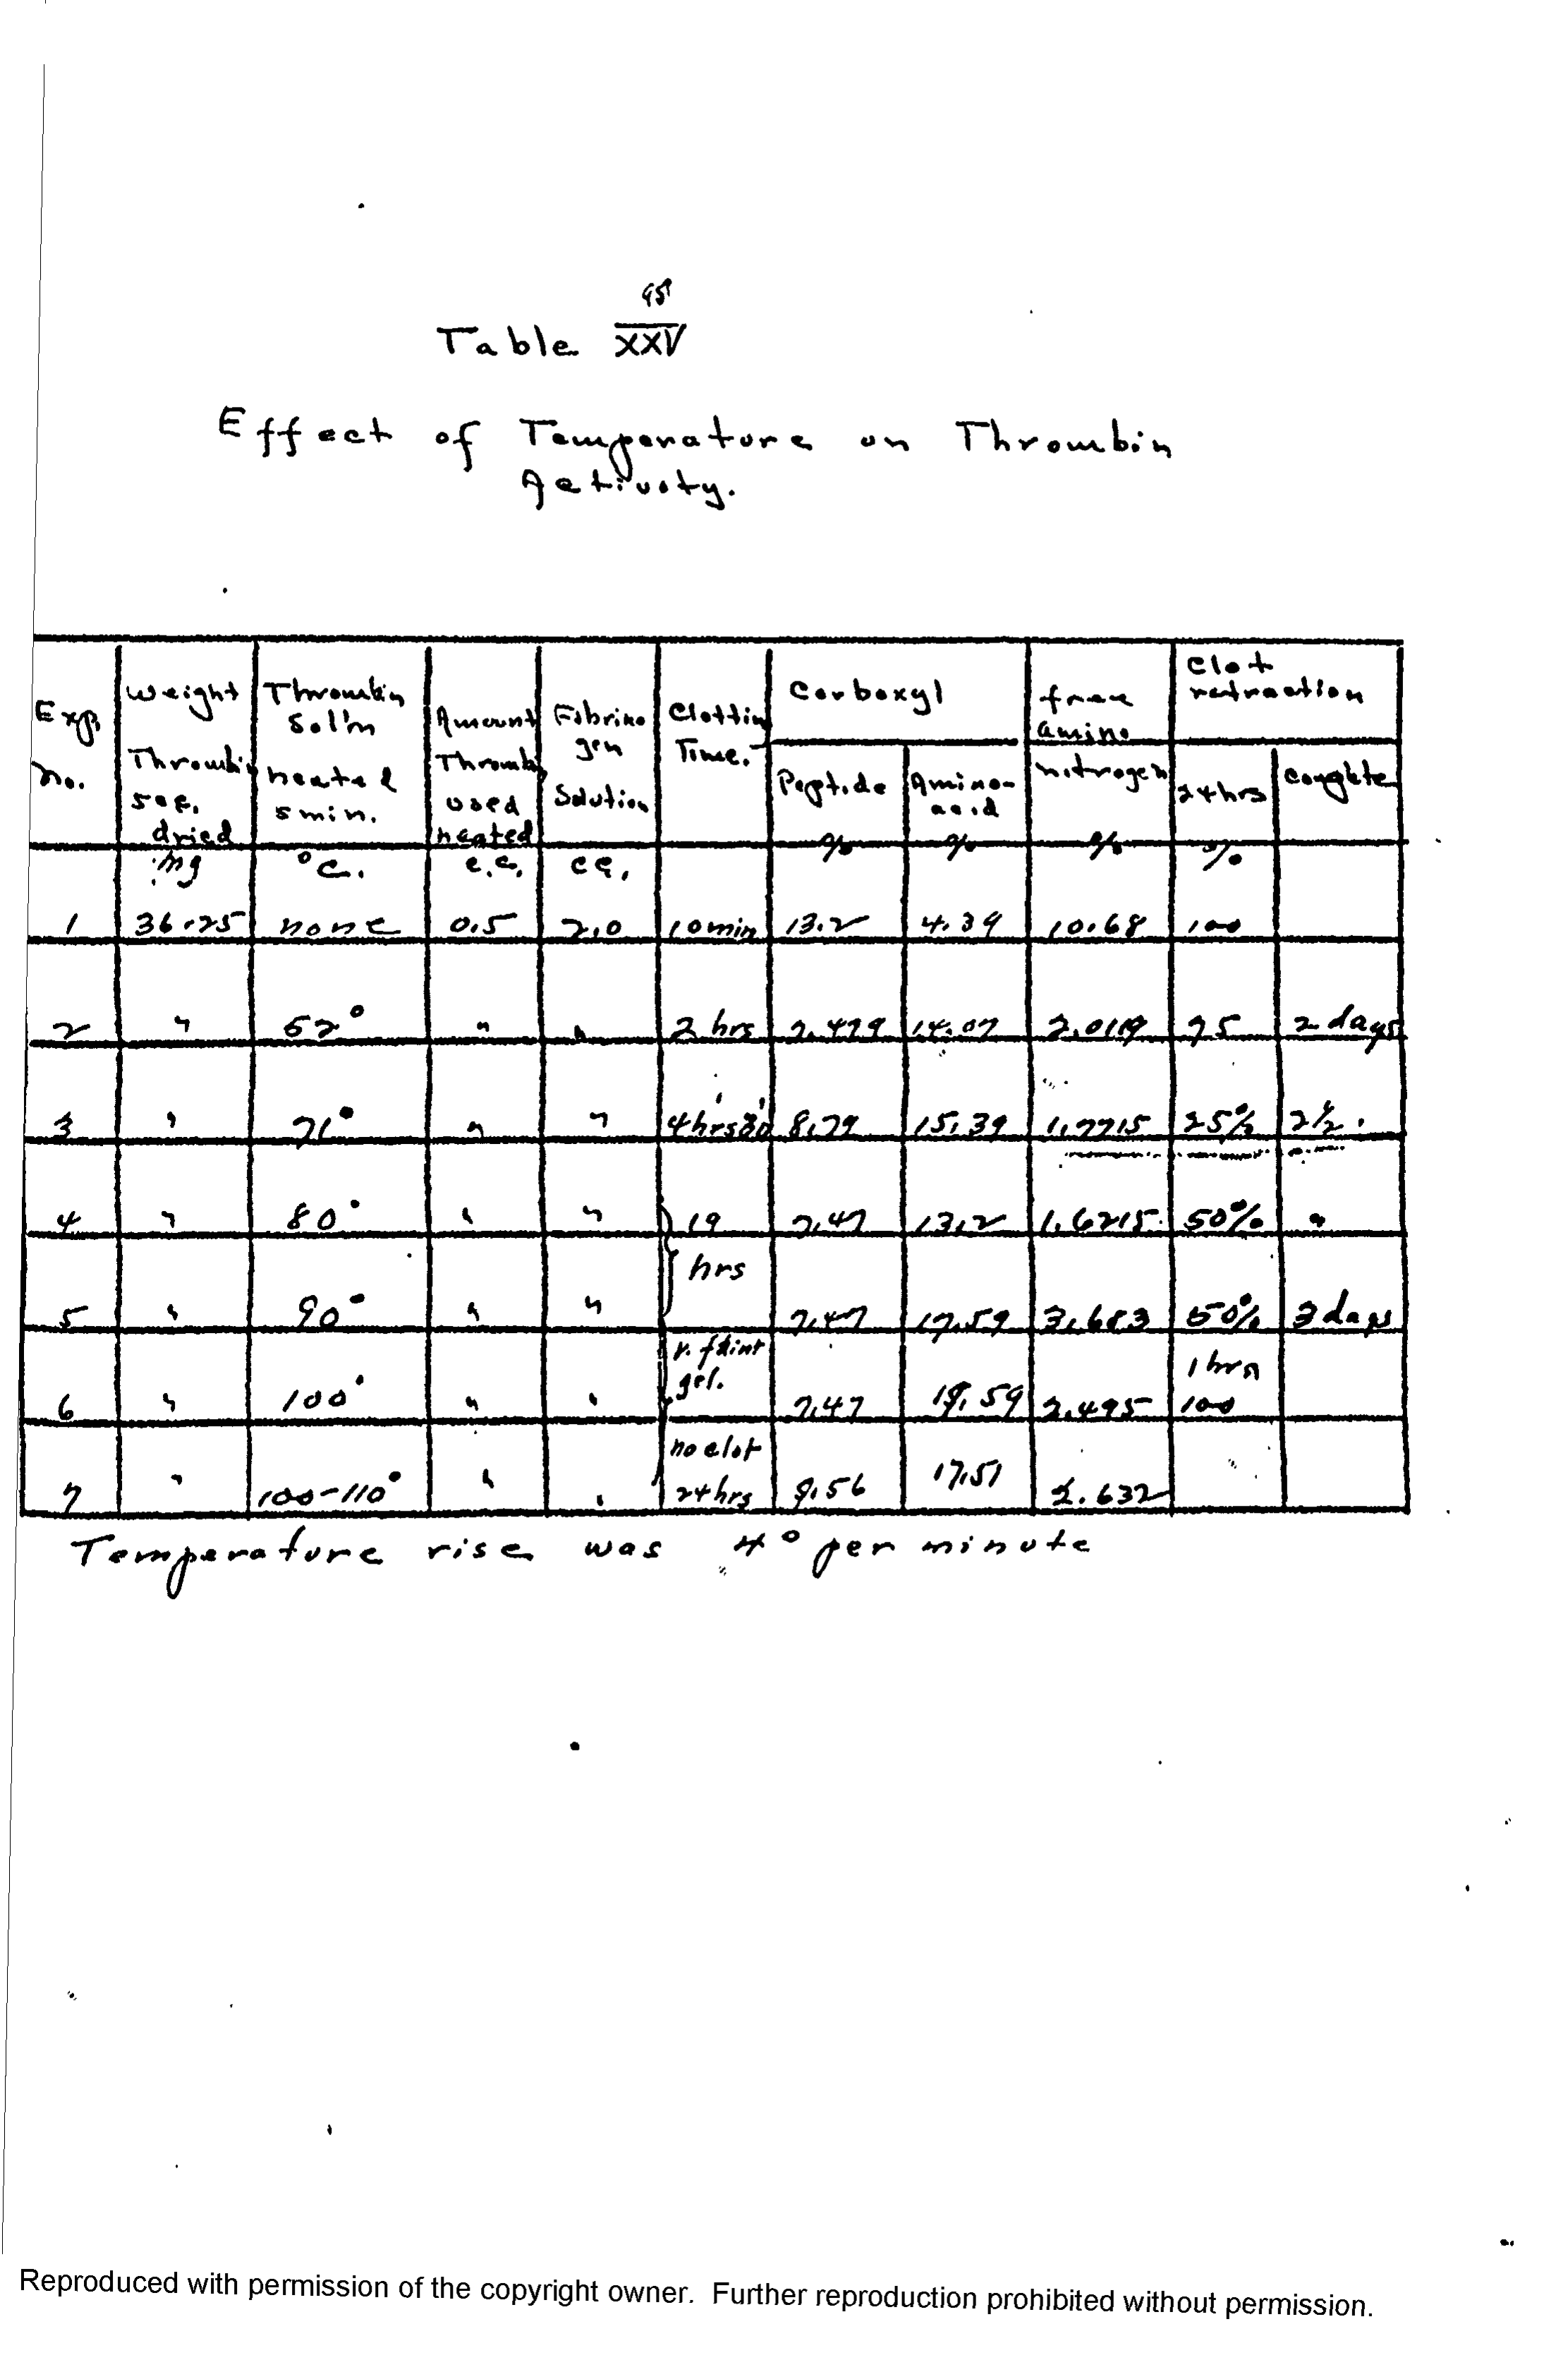 95
Table XXV
Effect of Temperature on Thrombin
Activity.
Exp. no. | Weight Thrombin 5 c.c. dried mg | Thrombin Sol'n heated 5 min. °C. | Amount Thrombin used heated c.c. | Fibrinogen Solution cc. | Clotting Time. | Carboxyl Peptide % | Carboxyl Amino-acid % | free amino nitrogen % | Clot retraction 24 hrs % | Complete
1 | 36.25 | none | 0.5 | 2.0 | 10 min | 13.2 | 4.39 | 10.68 | 100
2 | " | 62° | " | " | 2 hrs | 7.479 | 14.07 | 2.0119 | 75 | 2 days
3 | " | 71° | " | " | 4 hrs 30' | 8.79 | 15.39 | 1.7715 | 25% | 2½ "
4 | " | 80° | " | " | 19 hrs | 7.47 | 13.2 | 1.6215 | 50% | "
5 | " | 90° | " | " | 7.47 | 17.59 | 3.683 | 50% | 3 days
6 | " | 100° | " | " | v. faint gel. | 7.47 | 17.59 | 2.495 | 1 hr 100
7 | " | 100-110° | " | " | no clot 24 hrs | 9.56 | 17.51 | 2.632
Temperature rise was 4° per minute
Reproduced with permission of the copyright owner. Further reproduction prohibited without permission.